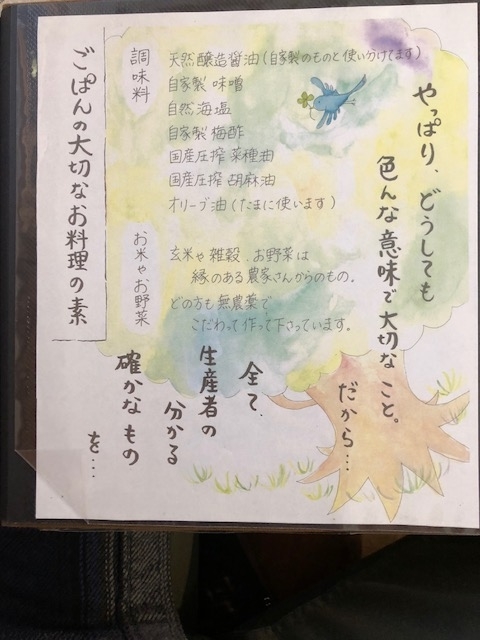 やっぱり、どうしても
色んな意味で大切なこと。
だから…
全て、
生産者の
分かる
確かなもの
を…
ごぱんの大切なお料理の素
調味料
天然醸造醤油(自家製のものと使い分けてます)
自家製 味噌
自然海塩
自家製梅酢
国産圧搾 菜種油
国産圧搾 胡麻油
オリーブ油(たまに使います)
お米やお野菜
玄米や雑穀、お野菜は
縁のある農家さんからのもの。
どの方も無農薬で
こだわって作って下さっています。